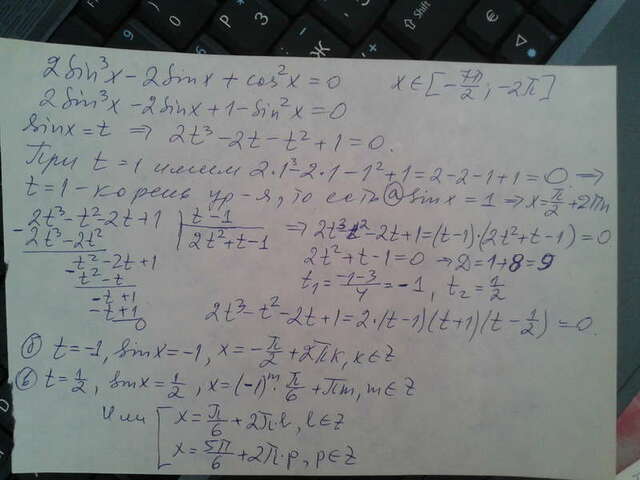 2sin³x - 2sinx + cos²x = 0   x∈[-7π/2; -2π]
2sin³x - 2sinx + 1 - sin²x = 0
sinx = t ⇒ 2t³ - 2t - t² + 1 = 0.
При t = 1 имеем 2·1³ - 2·1 - 1² + 1 = 2 - 2 - 1 + 1 = 0 ⇒
t = 1 - корень ур-я, то есть а) sinx = 1 ⇒ x = π/2 + 2πn
2t³ - t² - 2t + 1 | t - 1 ⇒ 2t³ - t² - 2t + 1 = (t-1)·(2t² + t - 1) = 0
- 2t³ - 2t² | 2t² + t - 1
t² - 2t + 1   2t² + t - 1 = 0 ⇒ D = 1 + 8 = 9
- t² - t   t₁ = (-1-3)/4 = -1, t₂ = 1/2
- t + 1
- - t + 1   2t³ - t² - 2t + 1 = 2·(t-1)(t+1)(t - 1/2) = 0
0
б) t = -1, sinx = -1, x = -π/2 + 2πk, k∈Z
в) t = 1/2, sinx = 1/2, x = (-1)ᵐ·π/6 + πm, m∈Z
или [ x = π/6 + 2π·l, l∈Z
x = 5π/6 + 2π·p, p∈Z